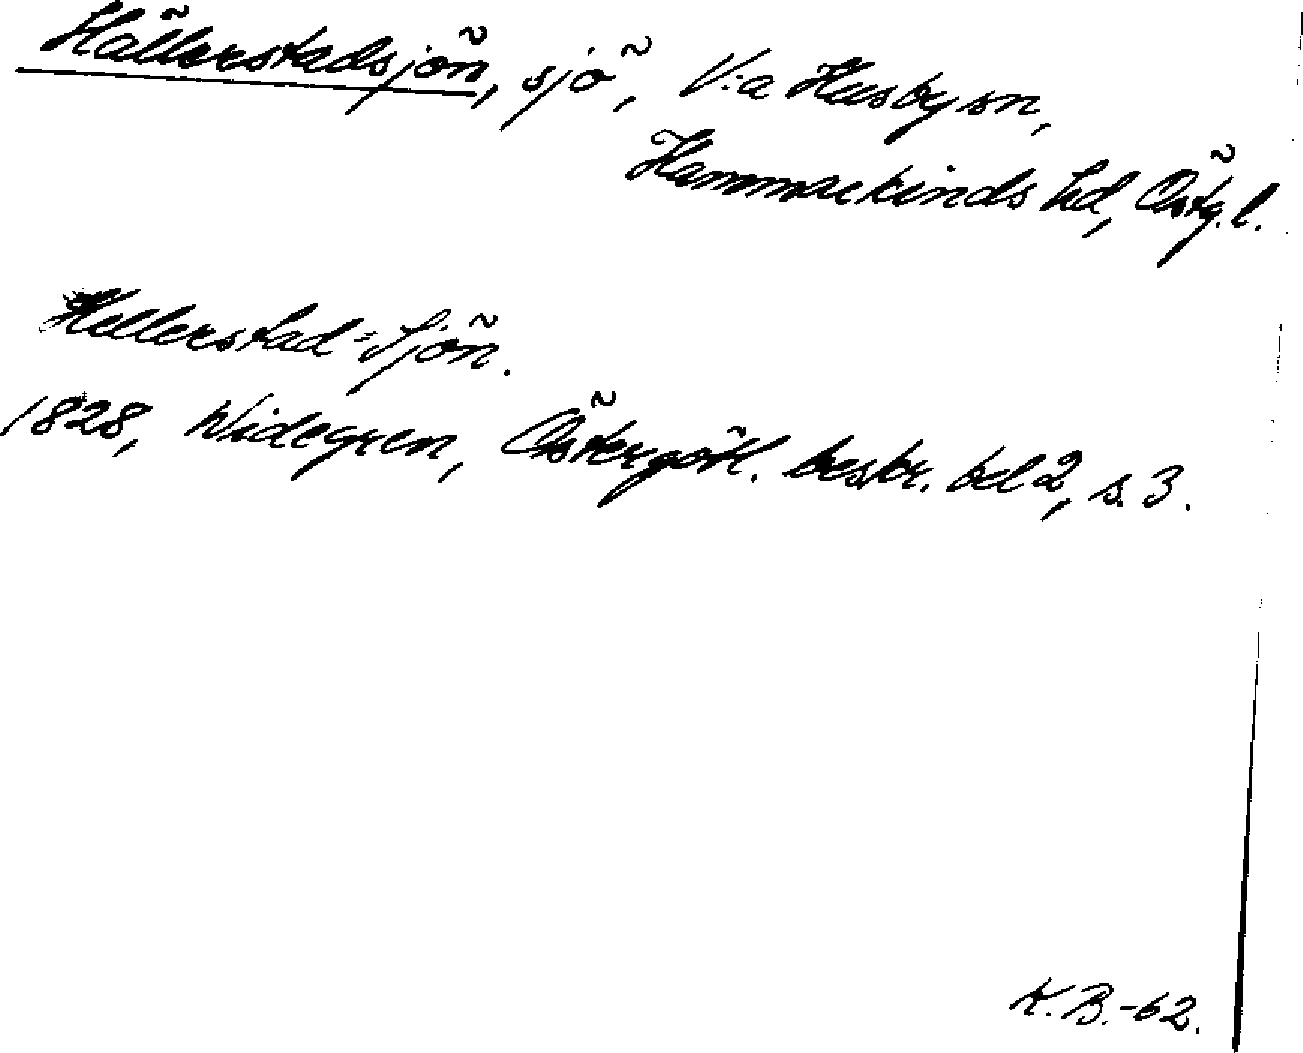 Hällerstadsjön, sjö, V:a Husby sn,
Hammarkinds hd, Östg. l.
Hellerstad=Sjön.
1828, Widegren, Östergötl. beskr. bd 2, s. 3.
K.B.-62.